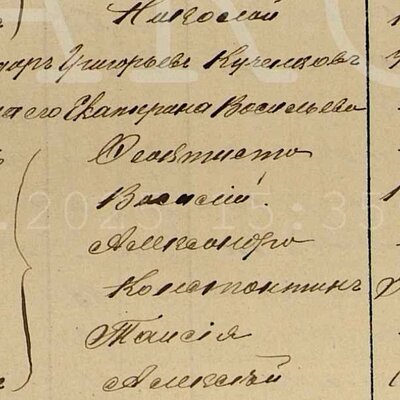 Николай
Григорьевъ Кученцовъ
его Екатерина Васильева
Феоктиста
Василій
Александра
Константинъ
Таисія
Алексѣй